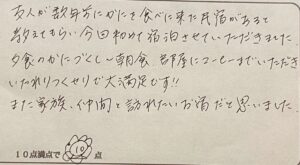 友人が数年前にかにを食べに来た民宿があると
教えてもらい今回初めて宿泊させていただきました
夕食のかにづくし〜朝食 部屋にコーヒーまでいただき
いたれりつくせりで大満足です!!
また家族、仲間と訪れたいお宿だと思いました
10点満点で 10 点